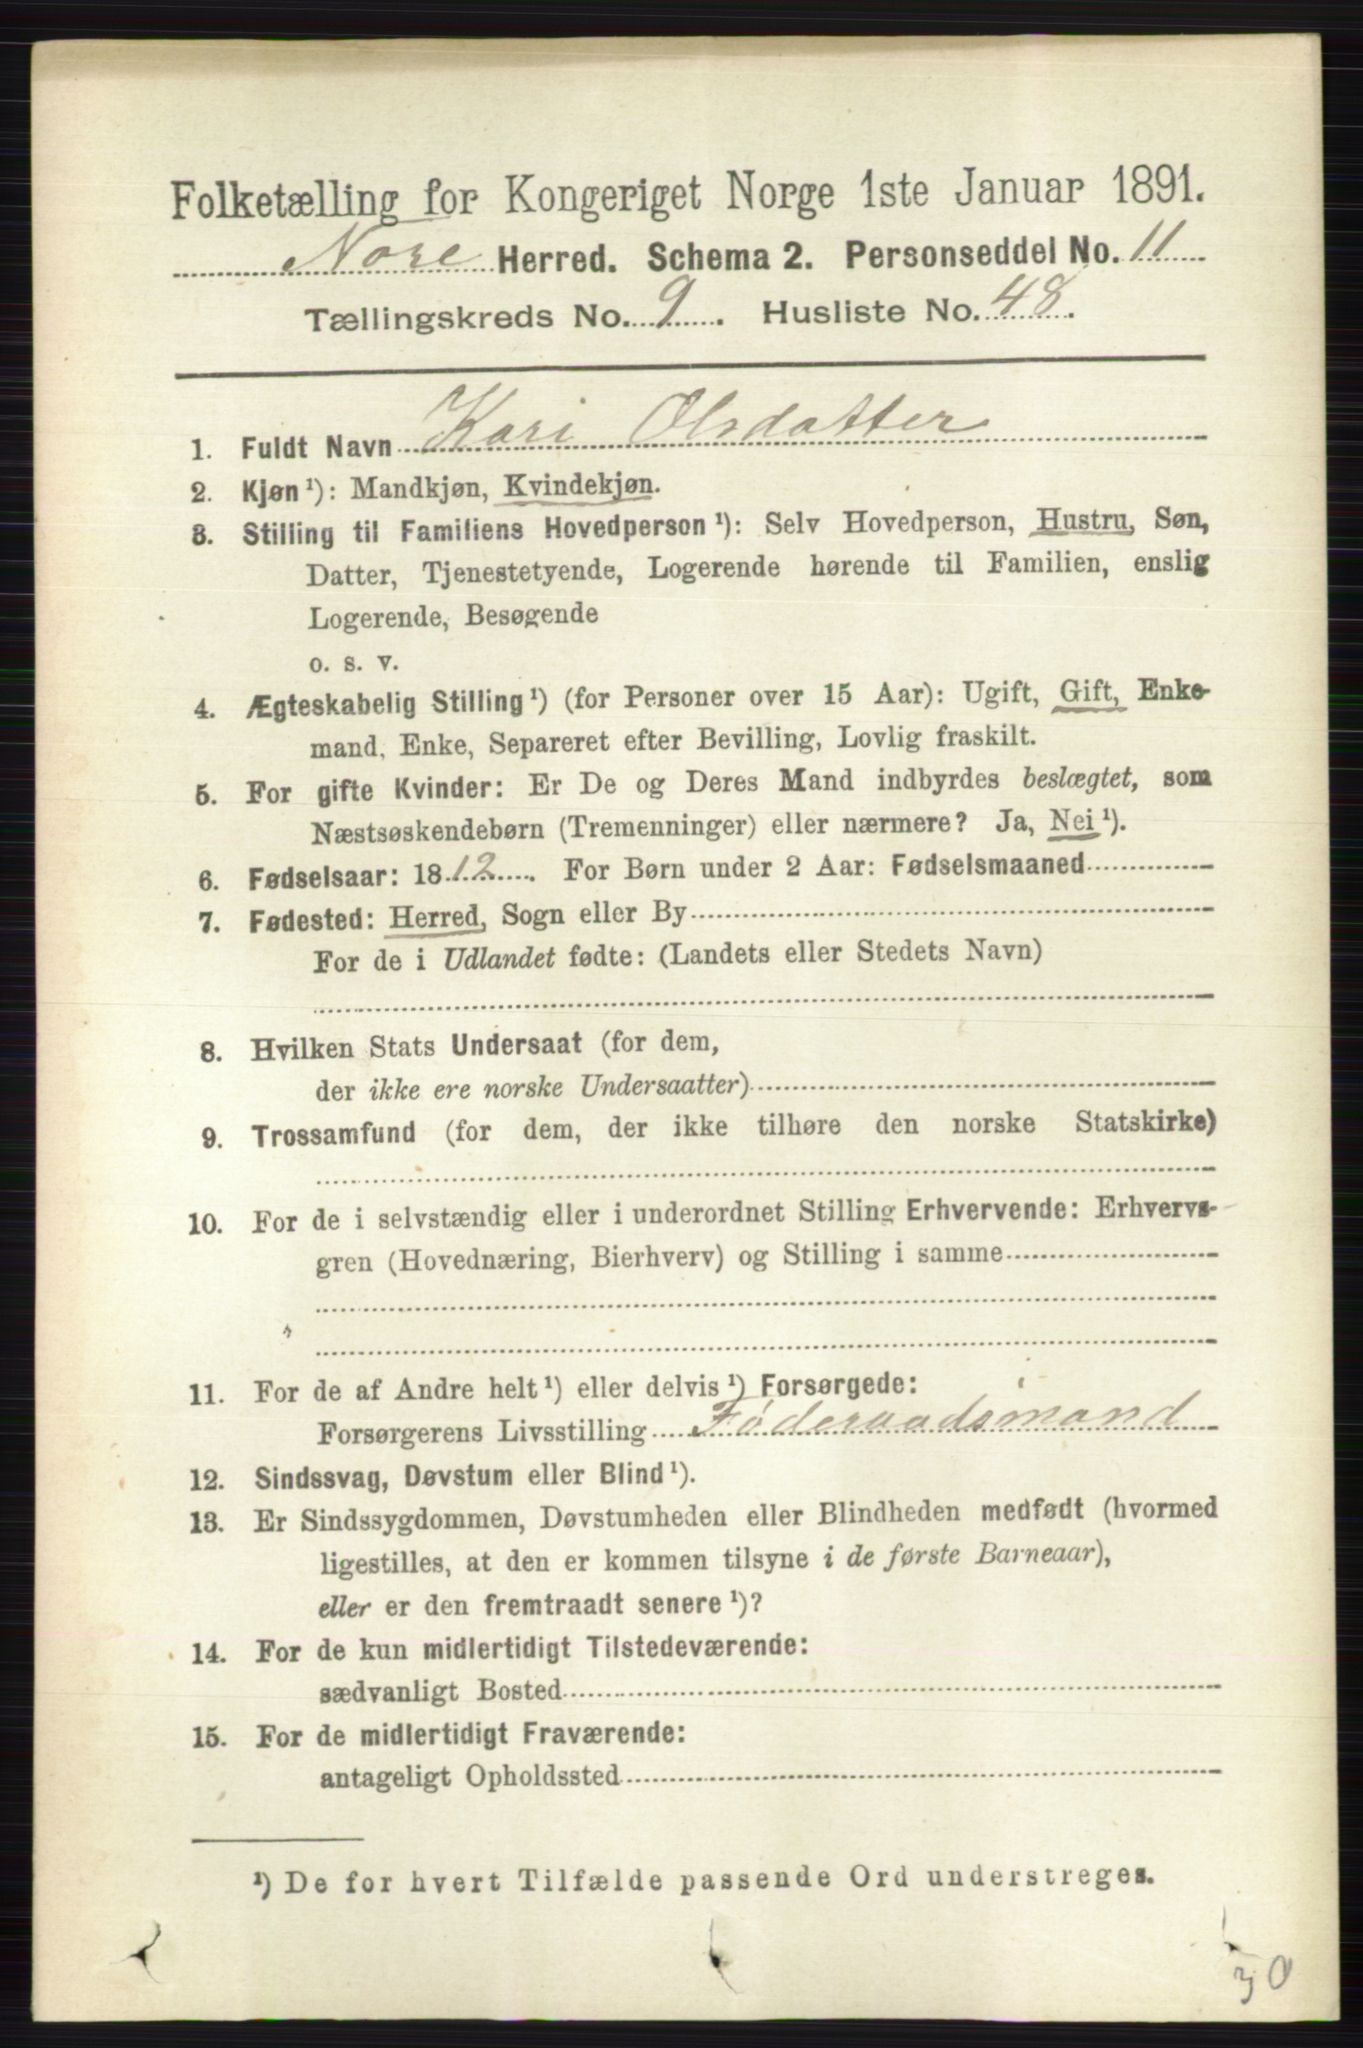 Folketælling for Kongeriget Norge 1ste Januar 1891.
Nore Herred. Schema 2. Personseddel No. 11
Tællingskreds No. 9. Husliste No. 48.
1. Fuldt Navn Kari Olsdatter
2. Kjøn ¹): Mandkjøn, Kvindekjøn.
3. Stilling til Familiens Hovedperson ¹): Selv Hovedperson, Hustru, Søn,
Datter, Tjenestetyende, Logerende hørende til Familien, enslig
Logerende, Besøgende
o. s. v.
4. Ægteskabelig Stilling ¹) (for Personer over 15 Aar): Ugift, Gift, Enke-
mand, Enke, Separeret efter Bevilling, Lovlig fraskilt.
5. For gifte Kvinder: Er De og Deres Mand indbyrdes beslægtet, som
Næstsøskendebørn (Tremenninger) eller nærmere? Ja, Nei ¹).
6. Fødselsaar: 1812. For Børn under 2 Aar: Fødselsmaaned
7. Fødested: Herred, Sogn eller By
For de i Udlandet fødte: (Landets eller Stedets Navn)
8. Hvilken Stats Undersaat (for dem,
der ikke ere norske Undersaatter)
9. Trossamfund (for dem, der ikke tilhøre den norske Statskirke)
10. For de i selvstændig eller i underordnet Stilling Erhvervende: Erhvervs-
gren (Hovednæring, Bierhverv) og Stilling i samme
11. For de af Andre helt ¹) eller delvis ¹) Forsørgede:
Forsørgerens Livsstilling Føderaadsmand
12. Sindssvag, Døvstum eller Blind ¹).
13. Er Sindssygdommen, Døvstumheden eller Blindheden medfødt (hvormed
ligestilles, at den er kommen tilsyne i de første Barneaar),
eller er den fremtraadt senere ¹)?
14. For de kun midlertidigt Tilstedeværende:
sædvanligt Bosted
15. For de midlertidigt Fraværende:
antageligt Opholdssted
¹) De for hvert Tilfælde passende Ord understreges.
30